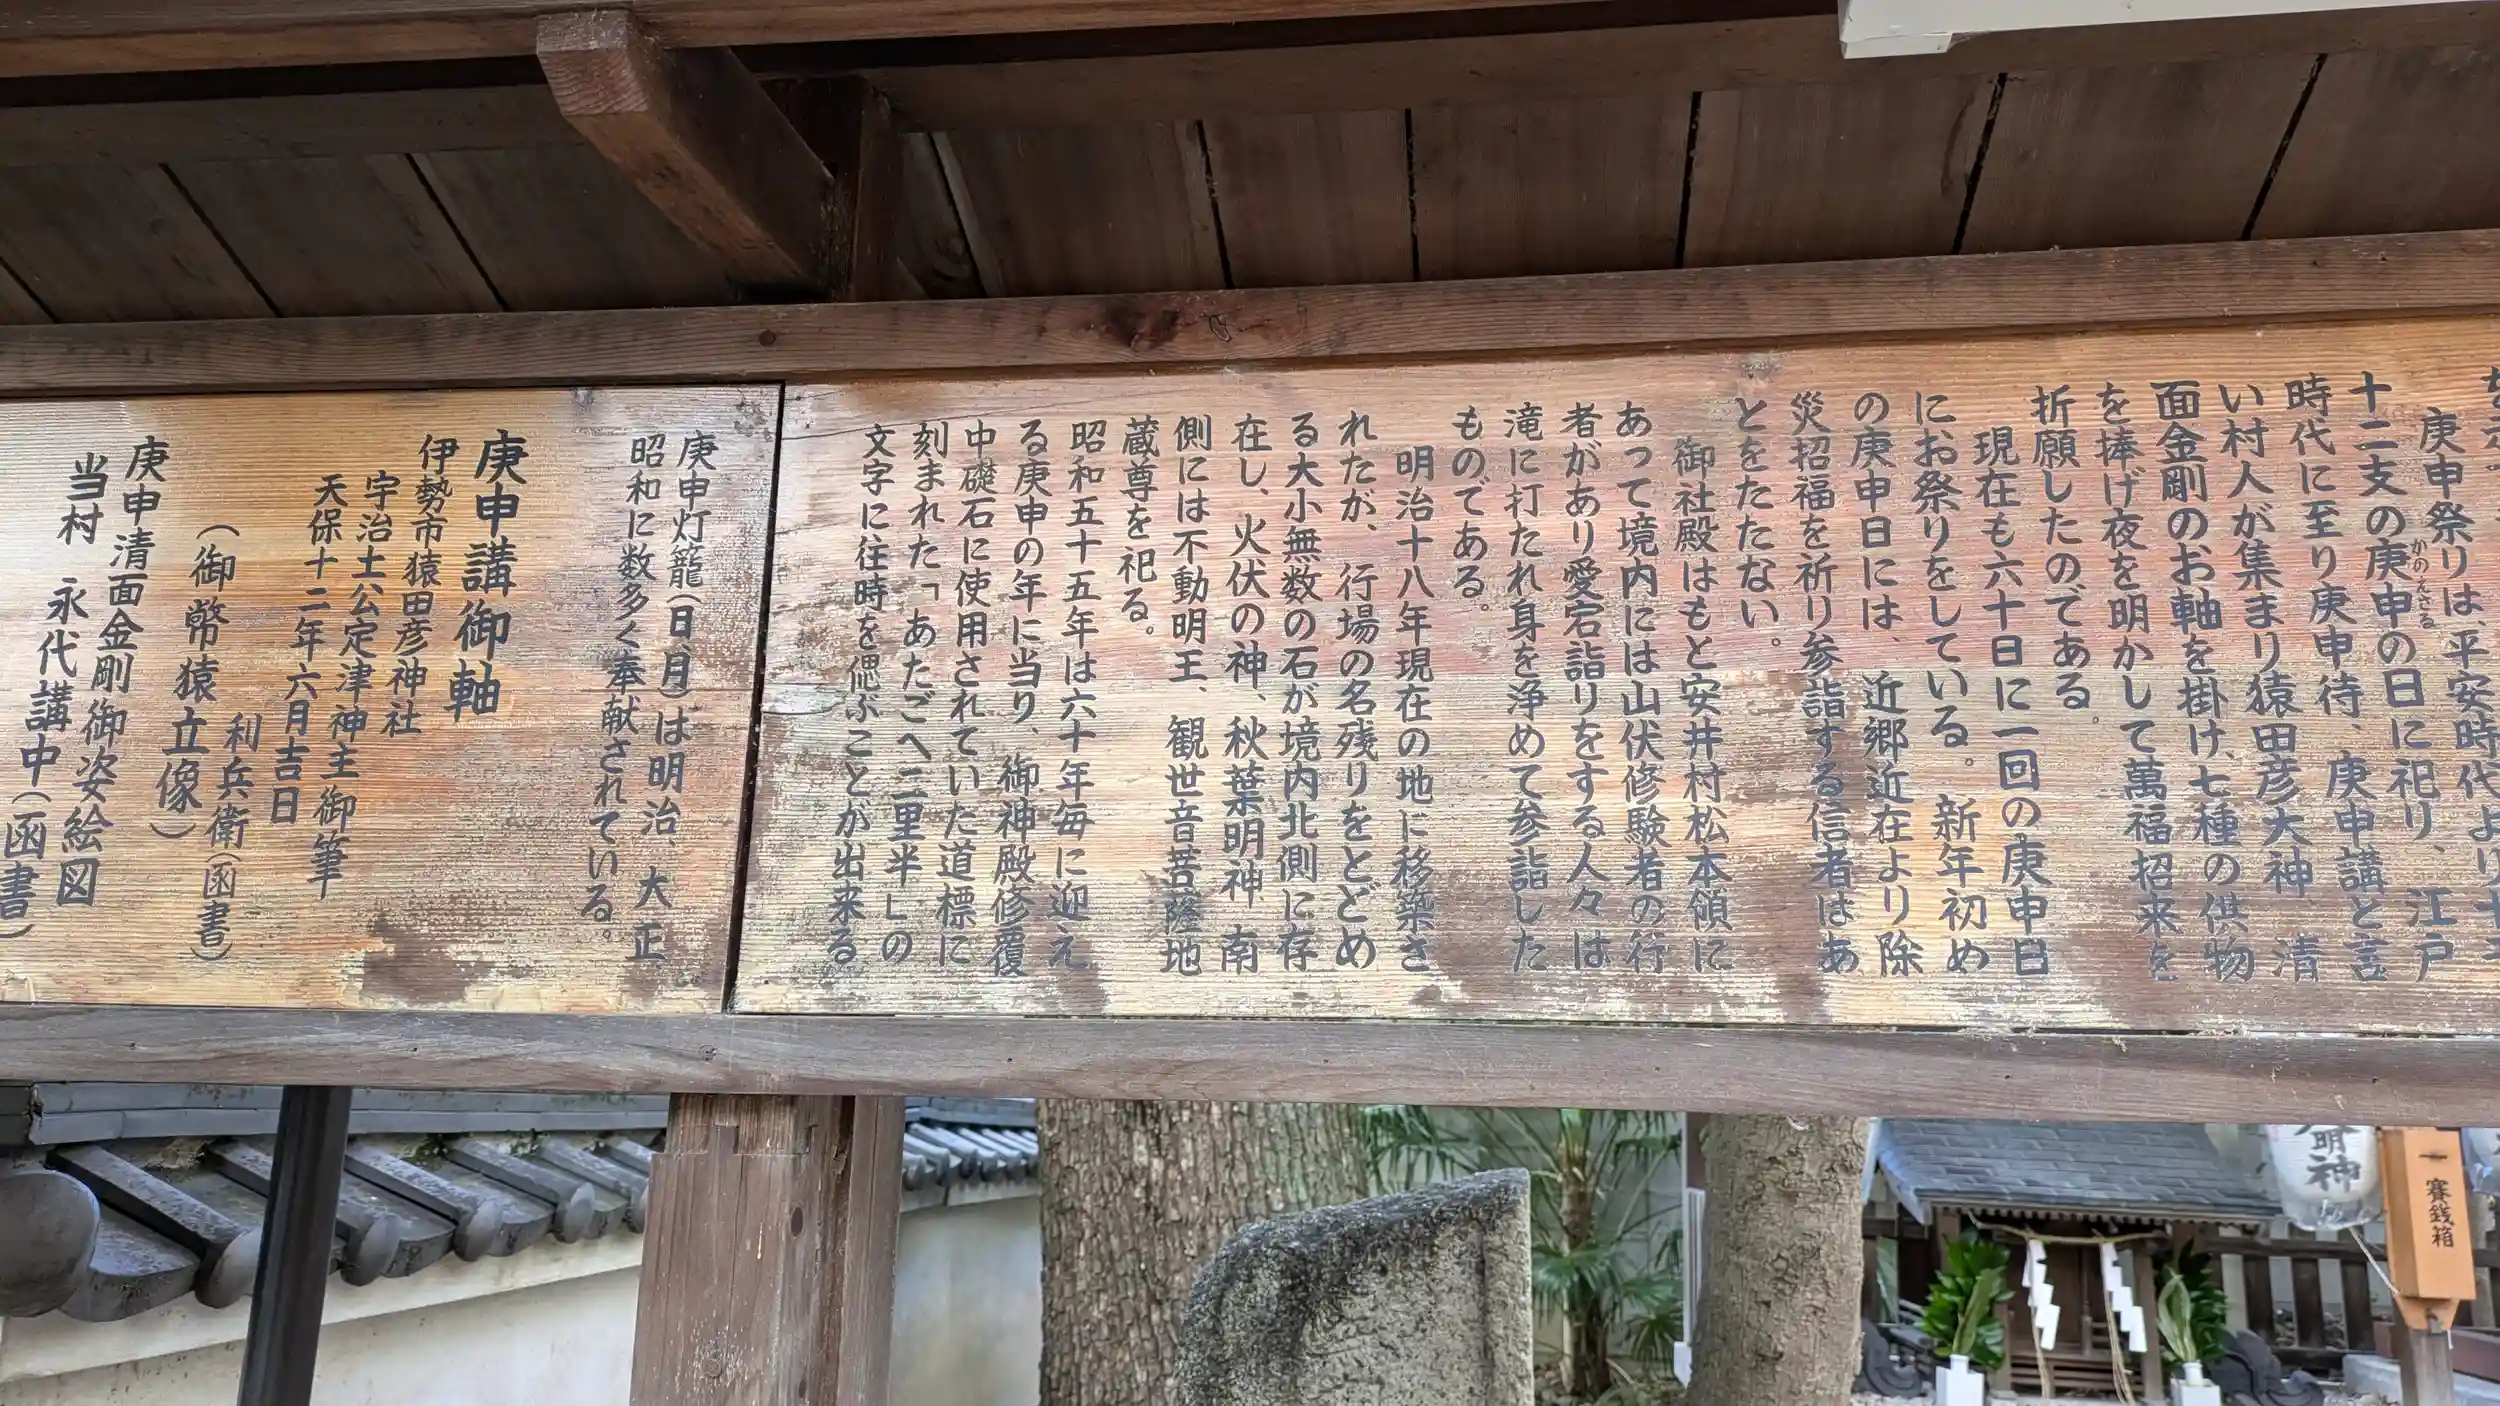 庚申祭りは、平安時代より
十二支の庚申の日に祀り、江戸
かのえさる
時代に至り庚申待、庚申講と言
い村人が集まり猿田彦大神 清
面金剛のお軸を掛け、七種の供物
を捧げ夜を明かして萬福招来を
祈願したのである。
現在も六十日に一回の庚申日
にお祭りをしている。新年初め
の庚申日には、近郷近在より除
災招福を祈り参詣する信者はあ
とをたたない。
御社殿はもと安井村松本領に
あって境内には山伏修験者の行
者があり愛宕詣りをする人々は
滝に打たれ身を浄めて参詣した
ものである。
明治十八年現在の地に移築さ
れたが、行場の名残りをとどめ
る大小無数の石が境内北側に存
在し、火伏の神、秋葉明神、南
側には不動明王、観世音菩薩地
蔵尊を祀る。
昭和五十五年は六十年毎に迎え
る庚申の年に当り、御神殿修覆
中礎石に使用されていた道標に
刻まれた「あたごへ二里半」の
文字に往時を偲ぶことが出来る
庚申灯籠(日、月)は明治、大正
昭和に数多く奉献されている。
庚申講御軸
伊勢市猿田彦神社
宇治土公定津神主御筆
天保十二年六月吉日
利兵衛(函書)
(御幣猿立像)
庚申清面金剛御姿絵図
当村 永代講中(函書)
明神
賽銭箱